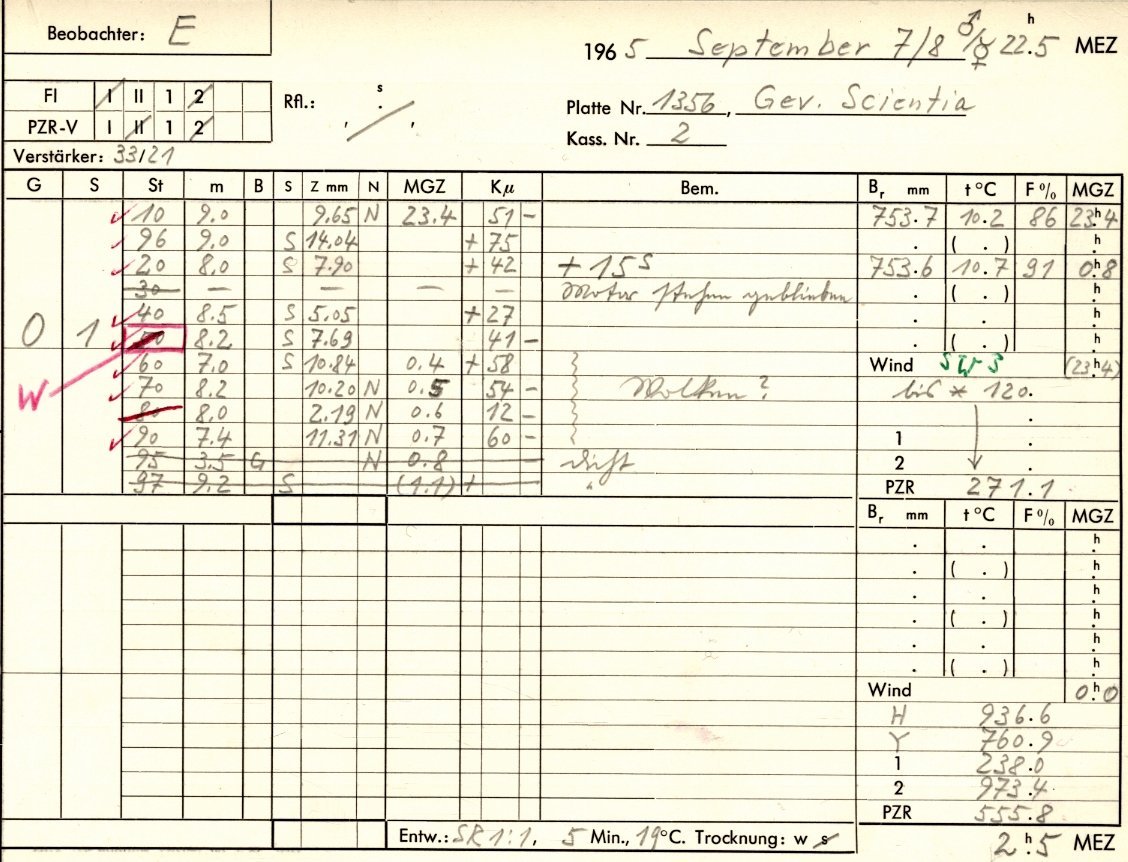 Beobachter: E
1965 September 7/8 ♂/☿ 22.5 h MEZ
FI I II 1 2
PZR-V I II 1 2
Rfl.: s
Platte Nr. 1356, Gev. Scientia
Kass. Nr. 2
Verstärker: 33/21
G S St m B S Z mm N MGZ Kμ Bem. Br mm t°C F% MGZ
10 9.0 9.65 N 23.4 51 - 753.7 10.2 86 23h4
96 9.0 S 14.04 + 75 ( . ) h
20 8.0 S 7.90 + 42 + 15s 753.6 10.7 91 0h8
30 — — — — Motor stehen geblieben ( . ) h
40 8.5 S 5.05 + 27 h
0 1 50 8.2 S 7.69 41 - ( . ) h
60 7.0 S 10.84 0.4 + 58 Wind SW 3 (23h4)
W 70 8.2 10.20 N 0.5 54 - Wolken? bis * 120.
80 8.0 2.19 N 0.6 12 -
90 7.4 11.31 N 0.7 60 - 1
95 3.5 G N 0.8 dicht 2
97 9.2 S (1.1) + " PZR 271.1
Br mm t°C F% MGZ
. . h
. ( . ) h
. . h
. ( . ) h
. . h
. ( . ) h
Wind 0h0
H 936.6
Y 760.9
1 238.0
2 973.4
PZR 555.8
Entw.: SR 1:1, 5 Min., 19°C. Trocknung: w s
2h5 MEZ